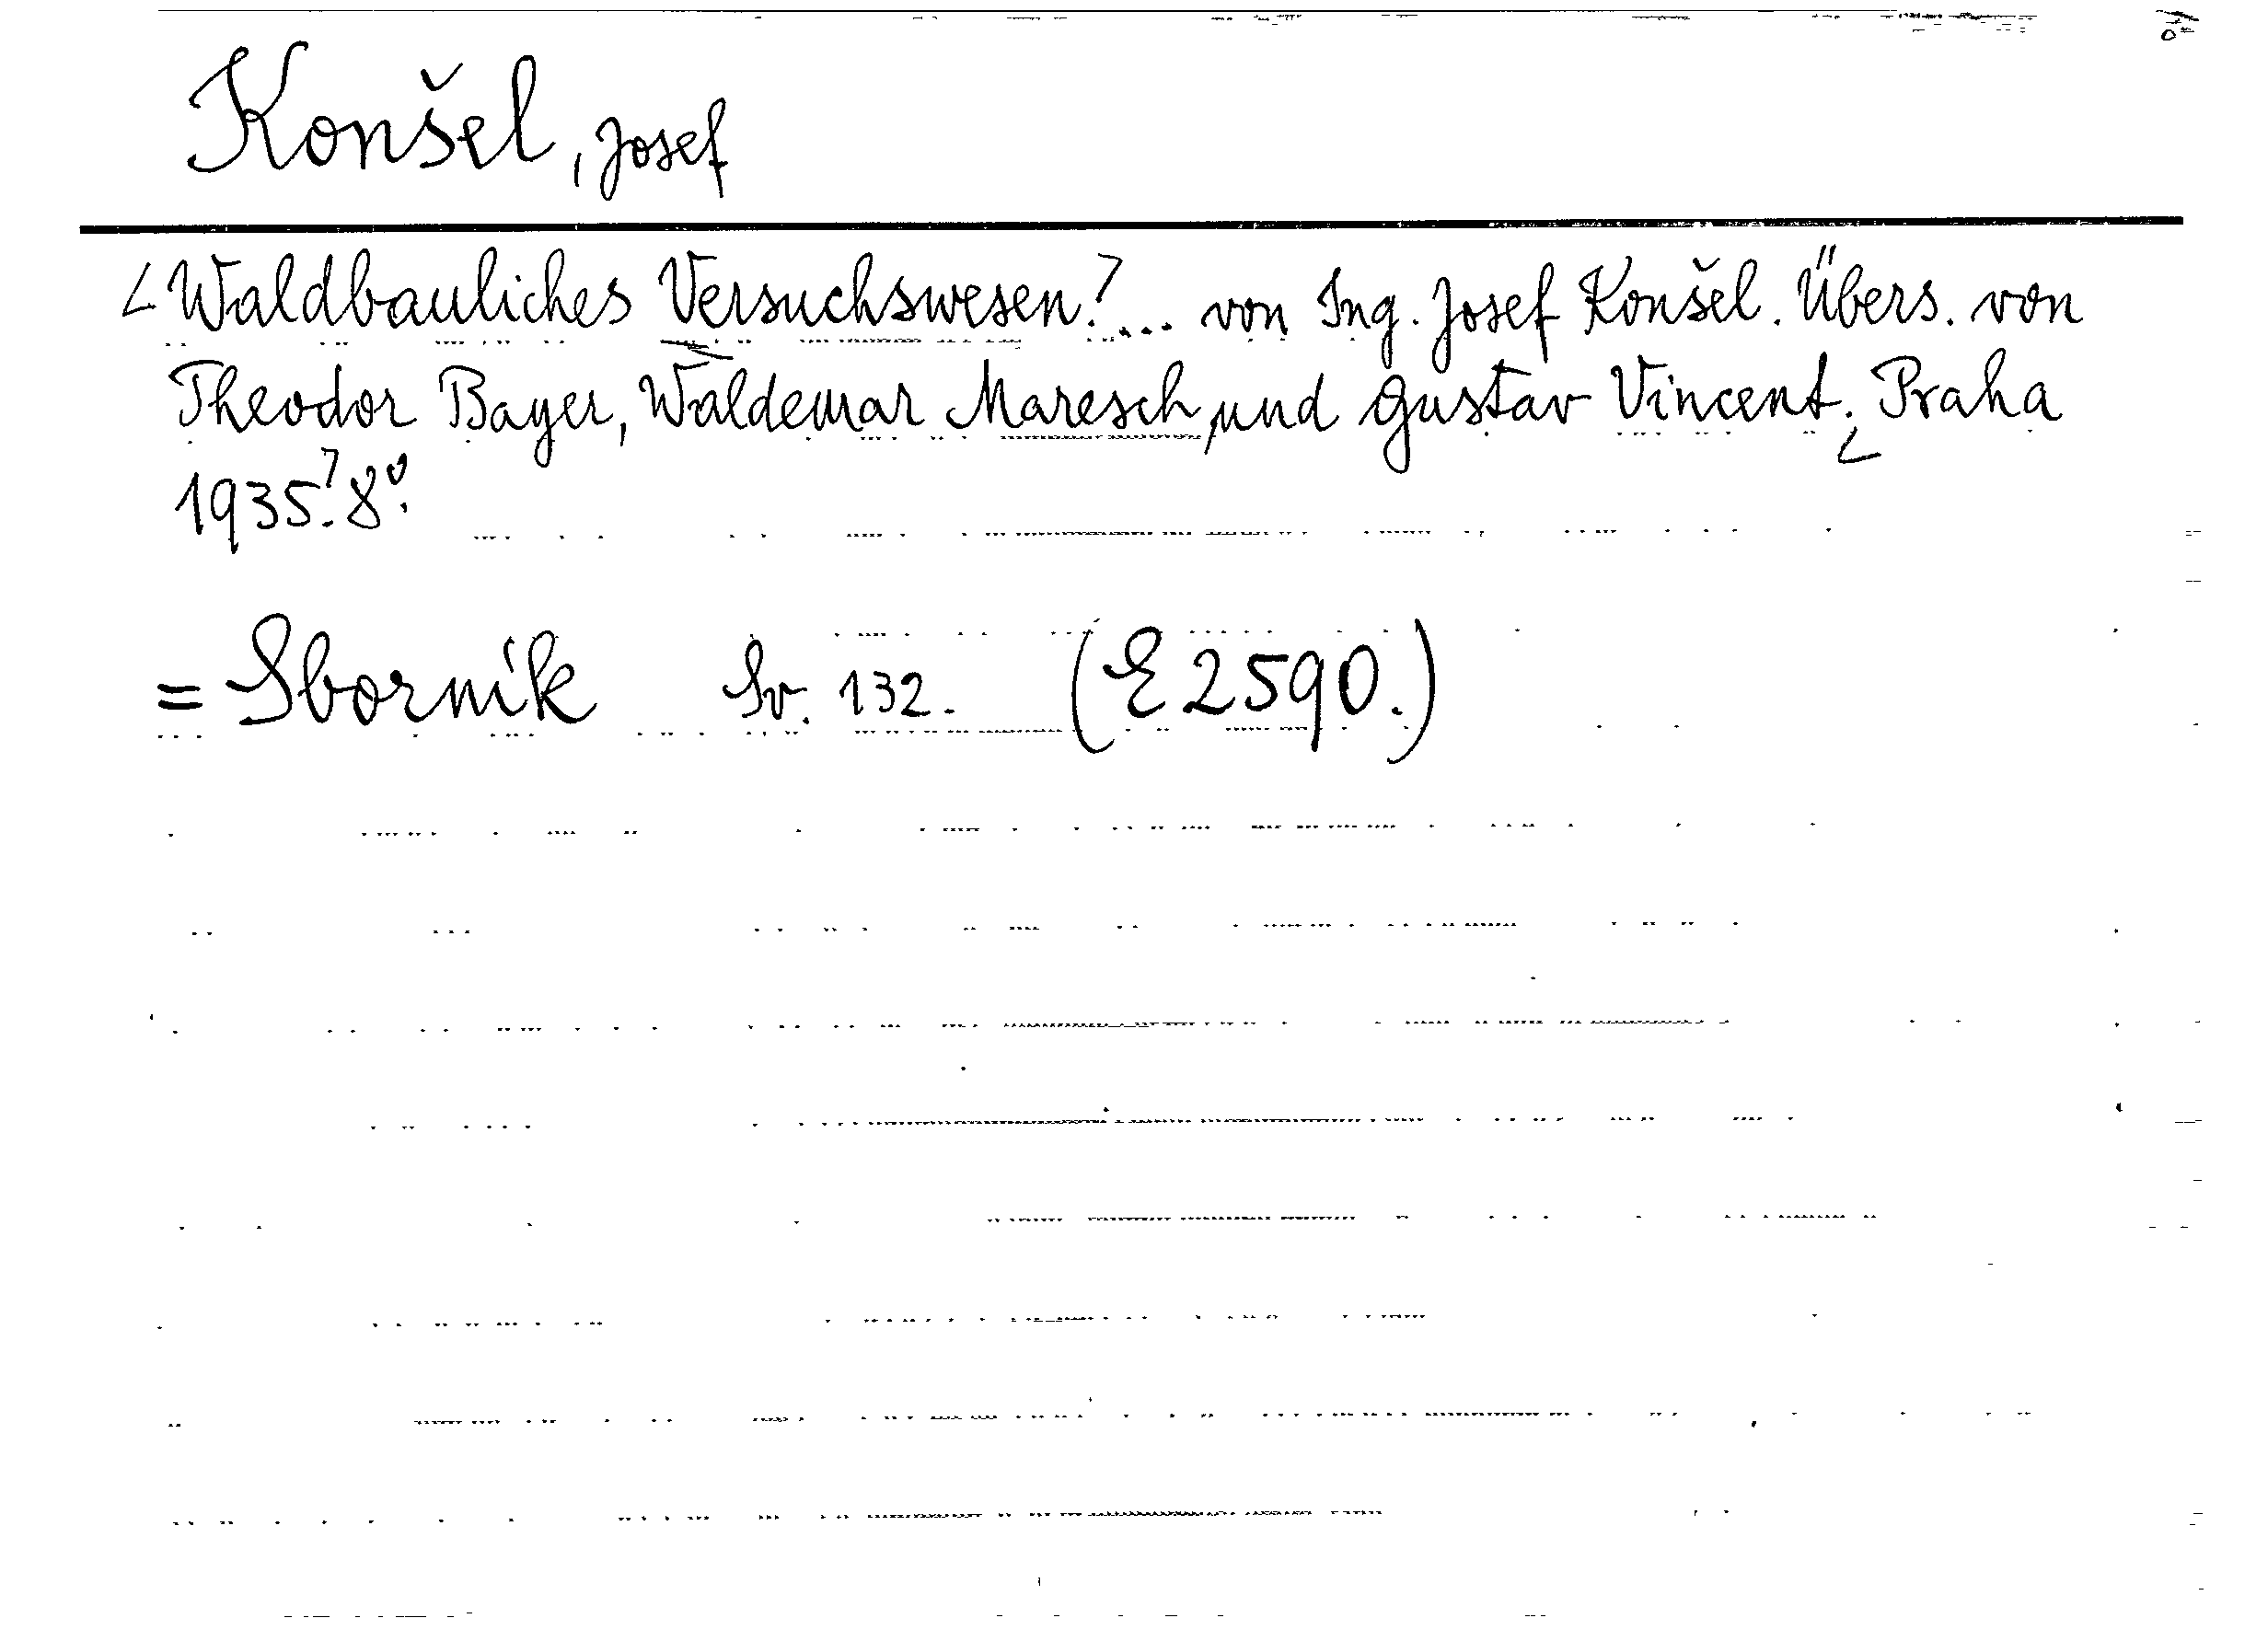 Konšel, Josef
<Waldbauliches Versuchswesen.> ... von Ing. Josef Konšel. Übers. von
Theodor Bayer, Waldemar Maresch und Gustav Vincent. <Praha
1935.> 8°.
= Sborník Sv. 132. (E 2590.)